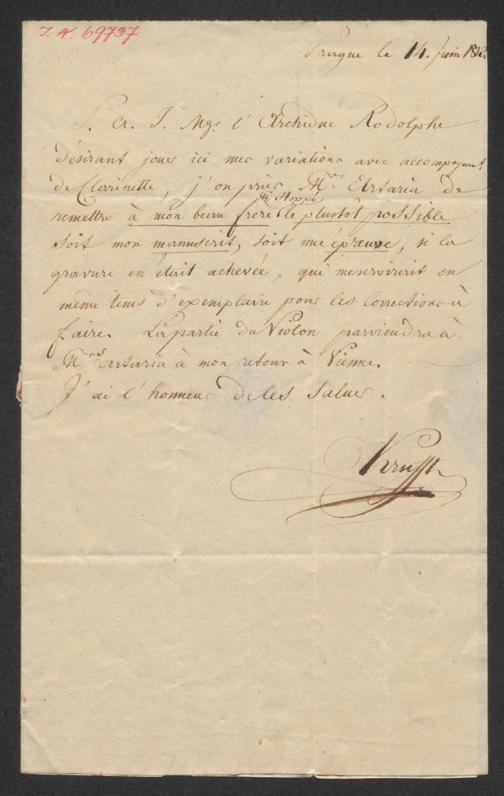 I. N. 69737
Prague le 14. Juin 181
S. A. I. Mgr l'Archiduc Rodolphe
désirant jouer ici mes variations avec accompagnt
de Clarinette, j'en prie Mrs Artaria de
remettre à mon beau frere de Hoppé le plustôt possible
soit mon manuscrit, soit une épreuve, si la
gravure en était achevée, qui me serviroit en
même tems d'exemplaire pour les corrections à
faire. La partie du Violon parviendra à
Mrs Artaria à mon retour à Vienne.
J'ai l'honneur de les saluer.
Krufft